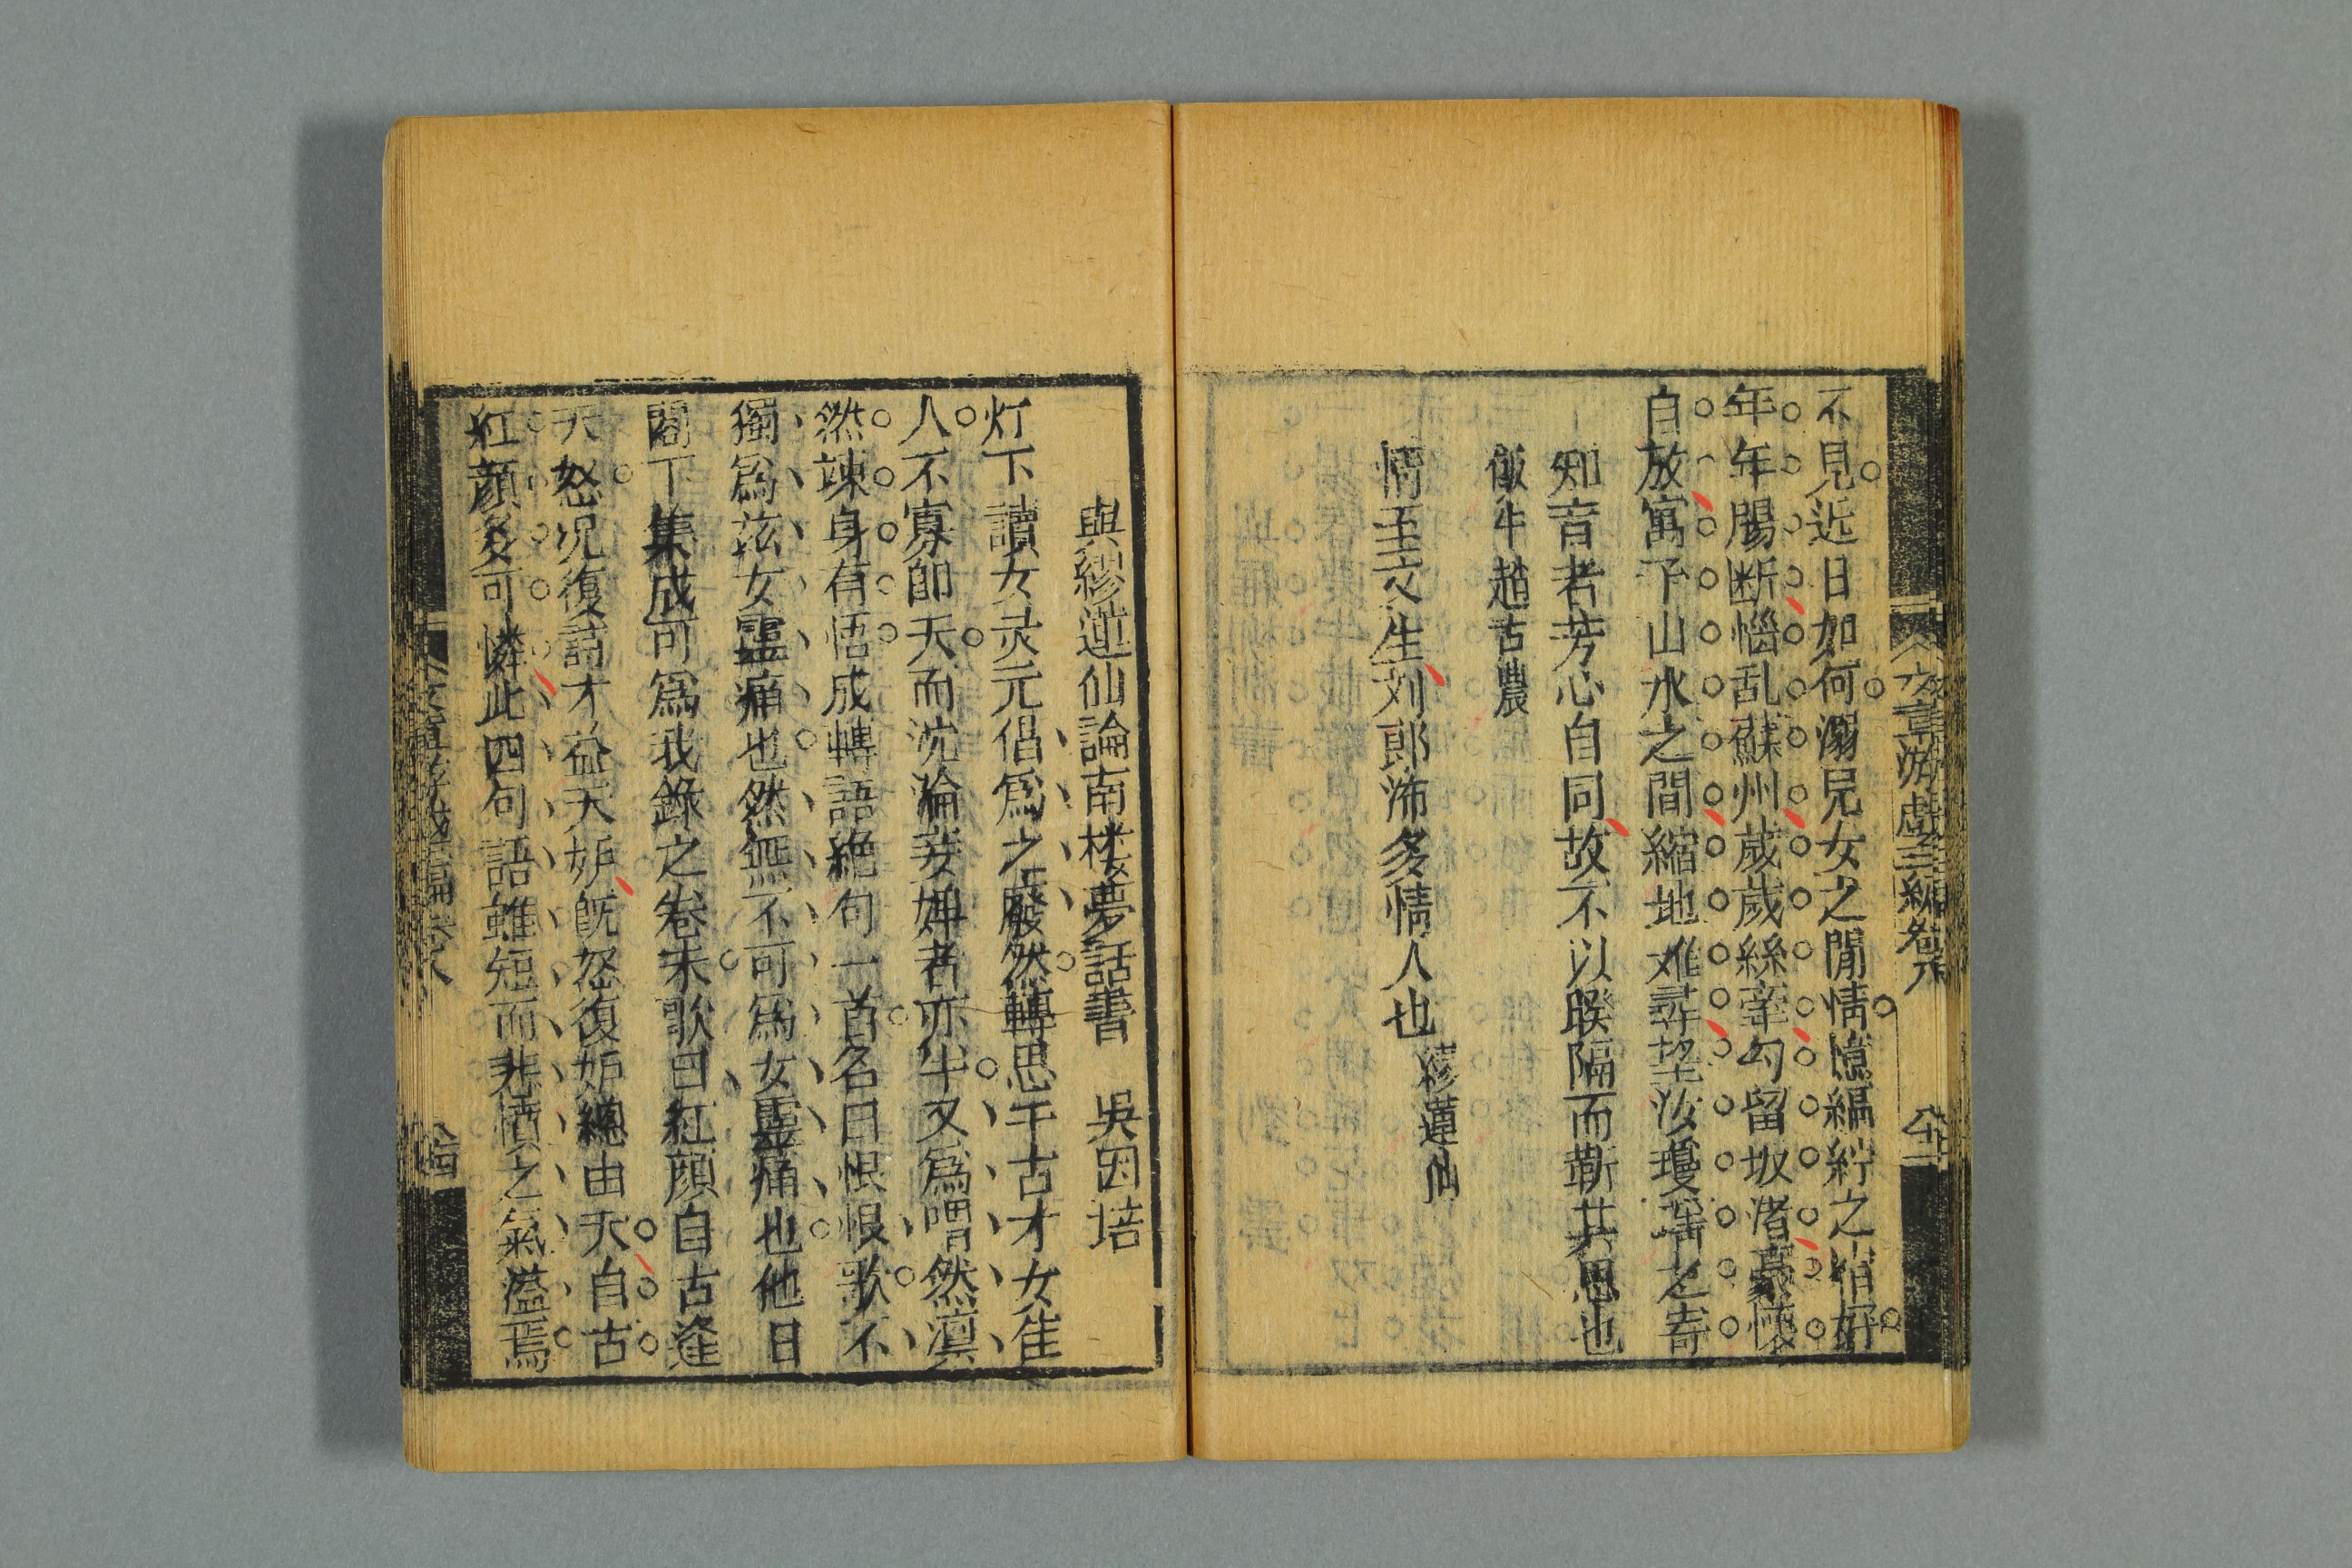 文章游戲三編卷八
不見近日如何溺兒女之閒情憶縞紵之情好
年年腸断惱乱蘇州歲歲絲牽勾留坂渚豪懷
自放寓予山水之間縮地难尋望汝瓊瑤之寄
知音者芳心自同故不以睽隔而蕲共思也
飯牛趙古農
情至文生刘郎沛多情人也 繆蓮仙
與繆蓮仙論南楼夢話書 吳因培
灯下讀女灵元倡爲之廢然轉思千古才女隹
人不寡卽夭而沈淪妾婢者亦半又爲喟然凛
然竦身有悟成轉語絕句一首名曰恨恨歌不
獨爲兹女靈痛也然無不可爲女靈痛也他日
閣下集成可爲我錄之卷未歌曰紅顔自古逢
天怒况復詩才益天妒旣怒復妒總由天自古
紅顔多可憐此四句語雖短而悲憤之氣溢焉
文章游戲三編卷八